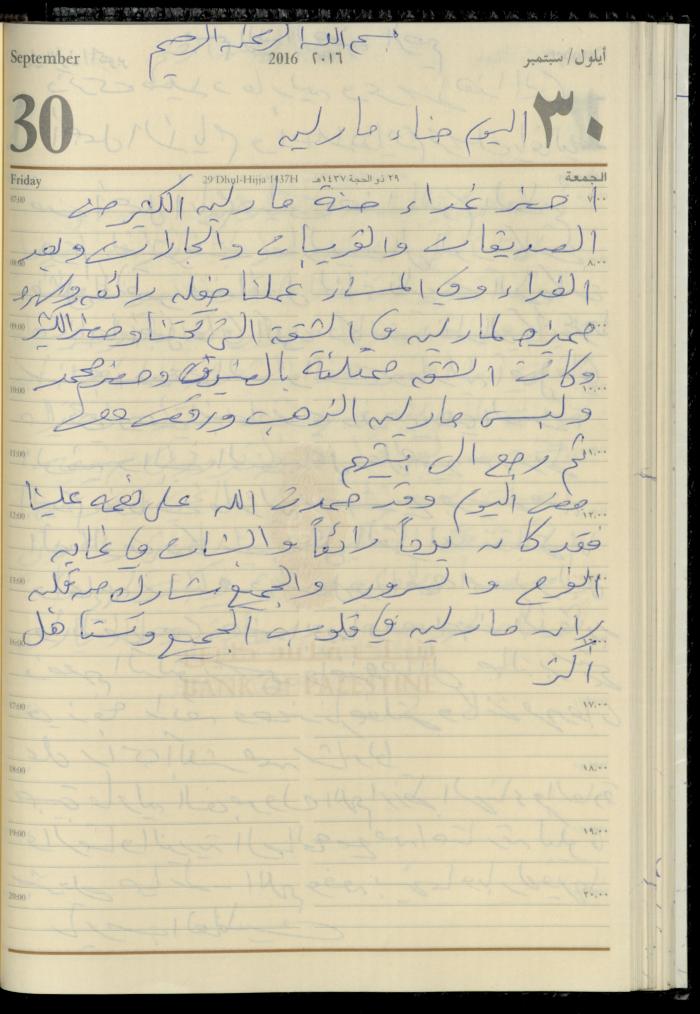 بسم الله الرحمن الرحيم
September 2016 ٢٠١٦ أيلول/سبتمبر
30 اليوم حناء مارلين ٣٠
Friday 29 Dhul-Hijja 1437H ٢٩ ذو الحجة ١٤٣٧هـ الجمعة
07:00 حضر غداء حنة مارلين الكثير من ٧.٠٠
الصديقات والقريبات والجارات وبعد
08:00 ٨.٠٠
الغداء وفي المساء عملنا حفله رائعه وسهره
09:00 مميزه لمارلين في الشقة التي تحتنا وحضر الكثير
وكانت الشقه ممتلئة بالضيوف وحضر محمد
10:00 ١٠.٠٠
ولبس مارلين الذهب ورقص معها
11:00 ثم رجع الى بيتهم ١١.٠٠
مضى اليوم وقد حمدت الله على نعمه علينا
12:00 ١٢.٠٠
فقد كان يوماً رائعاً والبنات في غايه
13:00 الفرح والسرور والجميع شارك من قلبه
لان مارلين في قلوب الجميع وتستاهل
أكثر
BANK OF PALESTINE
17:00 ١٧.٠٠
18:00 ١٨.٠٠
19:00 ١٩.٠٠
20:00 ٢٠.٠٠